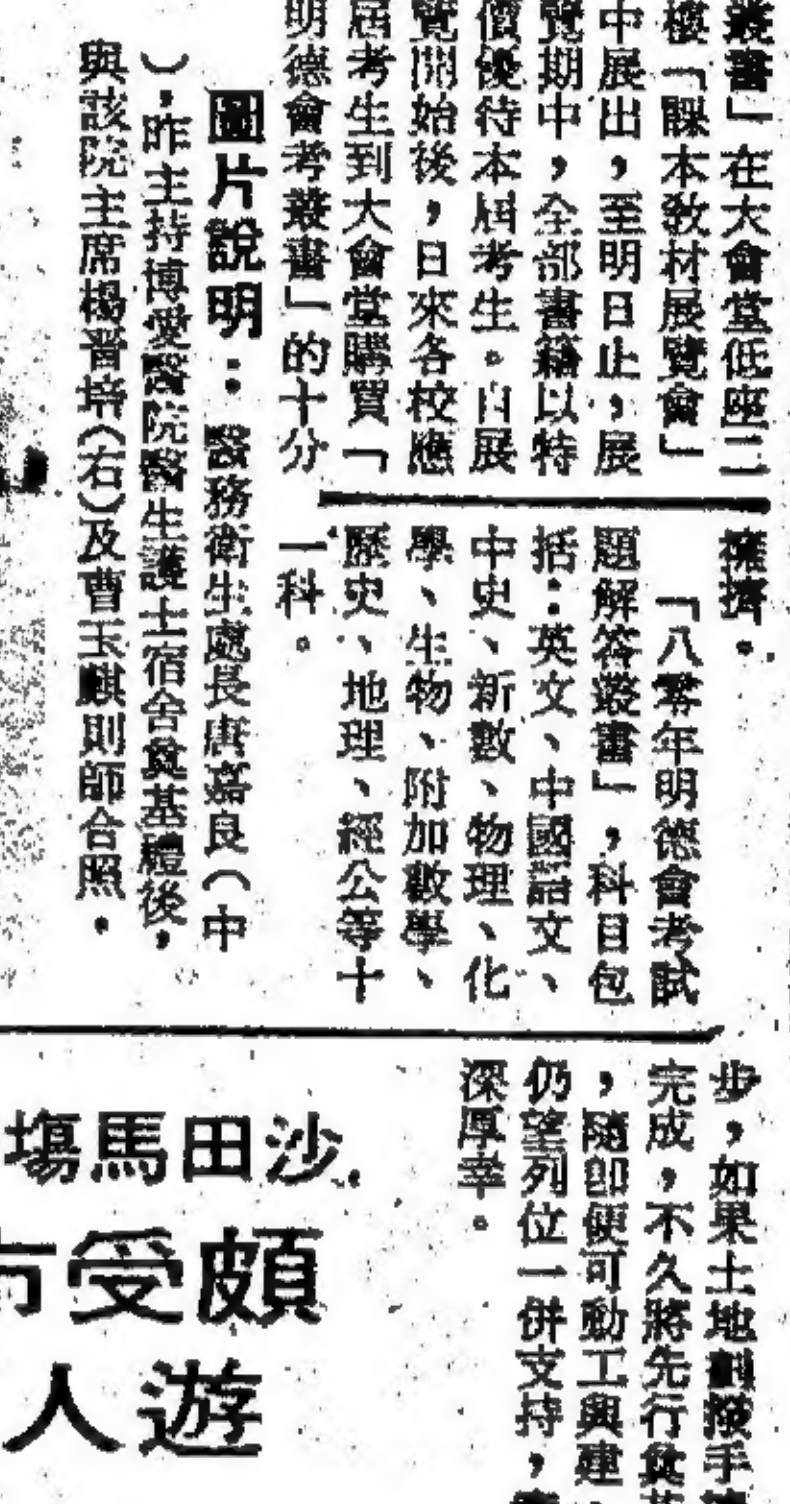 叢書」在大會堂低座二
樓「課本敎材展覽會」
中展出，至明日止，展
覽期中，全部書籍以特
價優待本屆考生。自展
覽開始後，日來各校應
屆考生到大會堂購買「
明德會考叢書」的十分
擁擠。
「八零年明德會考試
題解答叢書」，科目包
括：英文、中國語文、
中史、新數、物理、化
學、生物、附加數學、
歷史、地理、經公等十
一科。
圖片說明：醫務衞生處長唐嘉良（中
），昨主持博愛醫院醫生護士宿舍奠基禮後，
與該院主席楊晋培（右）及曹玉麒則師合照。
步，如果土地劃撥手
完成，不久將先行奠基
，隨即便可動工興建
仍望列位一併支持，
深厚幸。
沙田馬場
頗受市
遊人